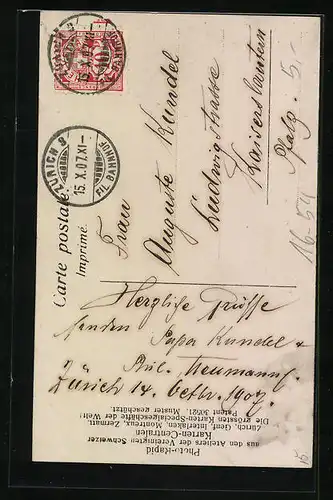 ZÜRICH 9
15. X. 07. XI-
FIL. BAHNHOF
Carte postale.
Imprimé.
Frau
Auguste Kundel
Ludwigstrasse
Kaiserslautern
Pfalz.
5.-
16-59
Herzliche Grüsse
senden Papa Kundel &
Neumann.
Zürich 14. Octbr. 1907.
Photo-Rapid
aus den Ateliers der Vereinigten Schweizer
Karten-Centralen
Zürich, Genf, Interlaken, Montreux, Zermatt.
Die grössten Karten-Spezialgeschäfte der Welt!
Patent 30521. Muster geschützt.